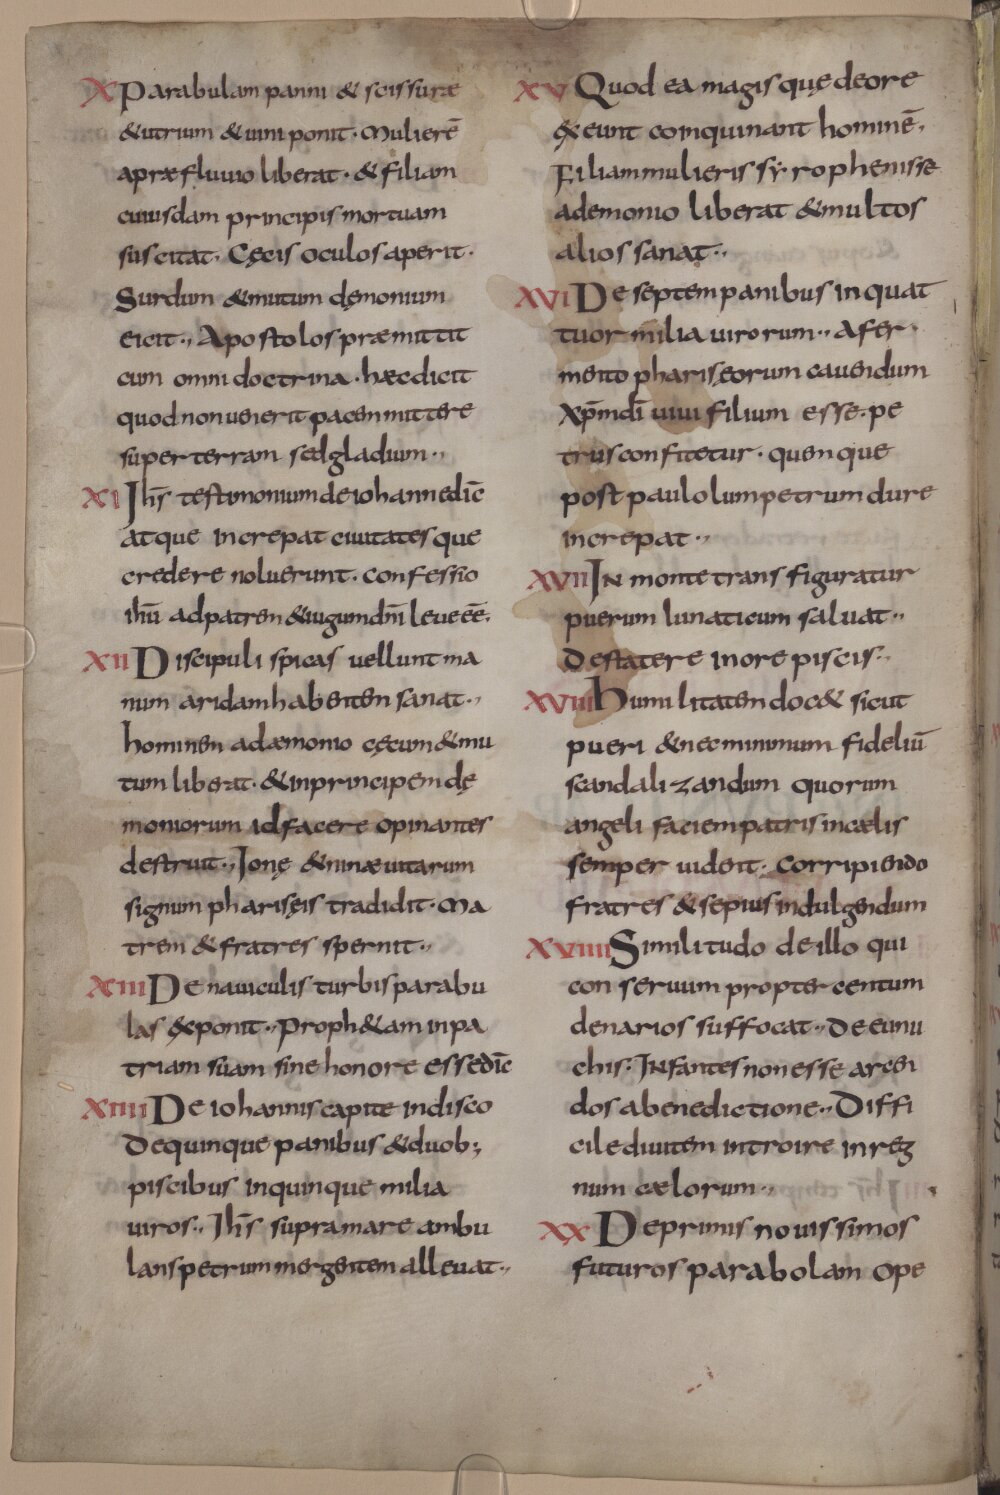 X Parabulam panni & scissuræ
& utrium & uini ponit · Mulierē
a præfluuio liberat · & filiam
cuiusdam principis mortuam
suscitat · Cęcis oculos aperit ·
Surdum & mutum dęmonium
eicit ·, Apostolos præmittit
cum omni doctrina · hæc dicit
quod non uenerit pacem mittere
super terram sed gladium ·,
XI Ihs̄ testimonium de iohanne dic̄
atque increpat ciuitates que
credere noluerunt · confessio
ihū ad patrem & iugum dn̄i leue eē ·
XII Discipuli spicas uellunt ma
num aridam habentem sanat ·,
hominem a dæmonio cęcum & mu
tum liberat · & in principem dę
moniorum id facere opinantes
destruit ·, Ionę & nineuitarum
signum pharisęis tradidit · Ma
trem & fratres spernit ·,
XIII De nauiculis turbis parabu
las exponit ·, Proph&am in pa
triam suam sine honore esse dic̄
XIIII De iohannis capite in disco
De quinque panibus & duob;
piscibus in quinque milia
uiros ·, Ihs̄ supra mare ambu
lans petrum mergentem alleuat ·,
XV Quod ea magis quę de ore
exeunt coinquinant hominē ·
Filiam mulieris syrophenisse
a demonio liberat & multos
alios sanat ·,
XVI De septem panibus in quat
tuor milia uirorum ·, A fer
mento pharisęorum cauendum
xp̄m dī uiui filium esse · pe
trus confitetur · quem que
post paululum petrum dure
increpat ·,
XVII IN monte transfiguratur
puerum lunaticum saluat ·,
De statere in ore piscis ·,
XVIII Humilitatem doc& sicut
pueri & nec minimum fideliū
scandalizandum quorum
angeli faciem patris in cælis
semper uident · Corripiendo
fratres & sepius indulgendum
XVIIII Similitudo de illo qui
conseruum propter centum
denarios suffocat ·, De eunu
chis · INfantes non esse arcen
dos a benedictione ·, Diffi
cile diuitem introire in reg
num cælorum ·,
XX De primis nouissimos
futuros parabolam ope